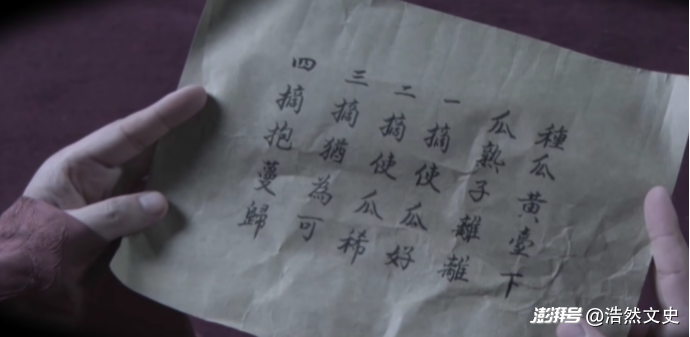 種瓜黃臺下
瓜熟子離離
一摘使瓜好
二摘使瓜稀
三摘猶為可
四摘抱蔓歸
澎湃号@浩然文史